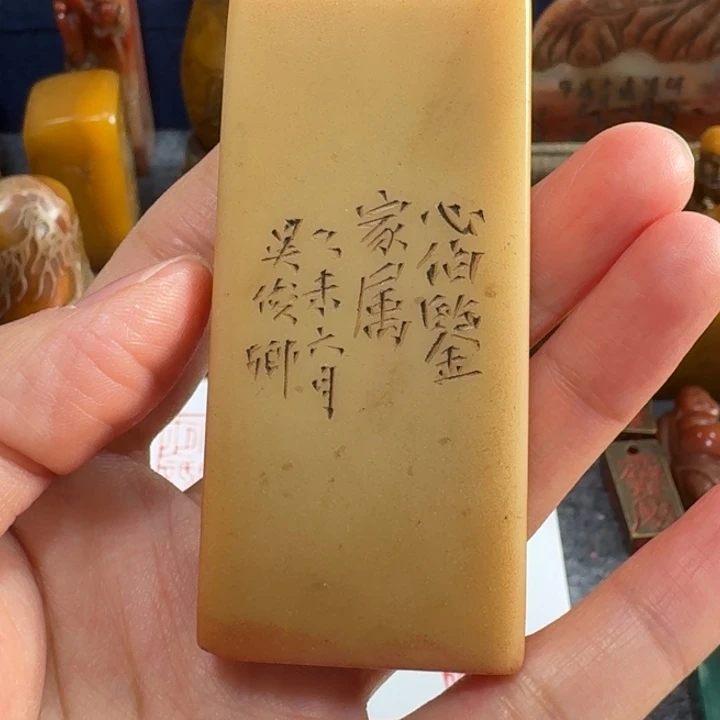 心伯鑒
家属
乙未六月
吴俊卿